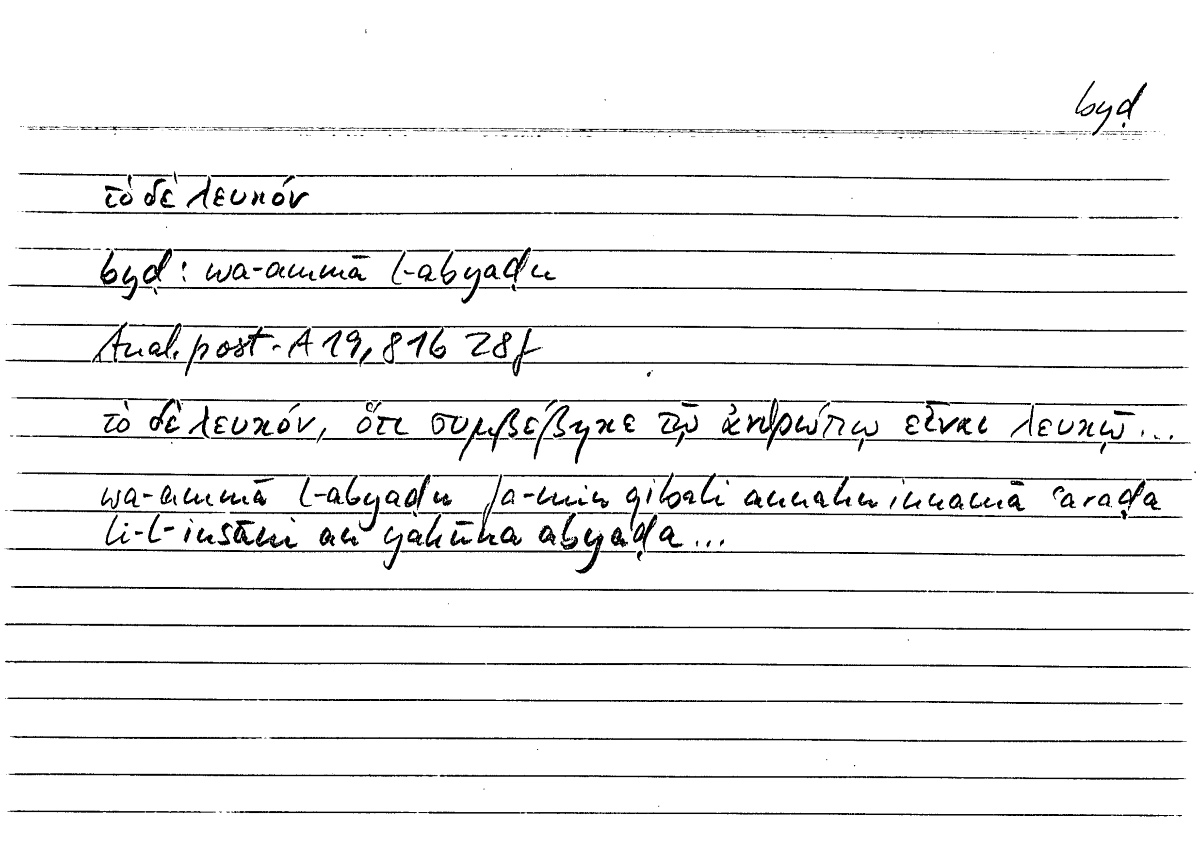 byḍ
τὸ δὲ λευκόν
byḍ: wa-ammā l-abyaḍu
Anal. post. A 19, 81b 28f
τὸ δὲ λευκόν, ὅτι συμβέβηκε τῷ ἀνθρώπῳ εἶναι λευκῷ...
wa-ammā l-abyaḍu fa-min qibali annahu innamā ʿaraḍa
li-l-insāni an yakūna abyaḍa...